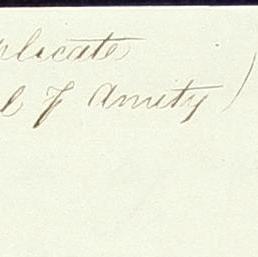 plicate
l of Amity )